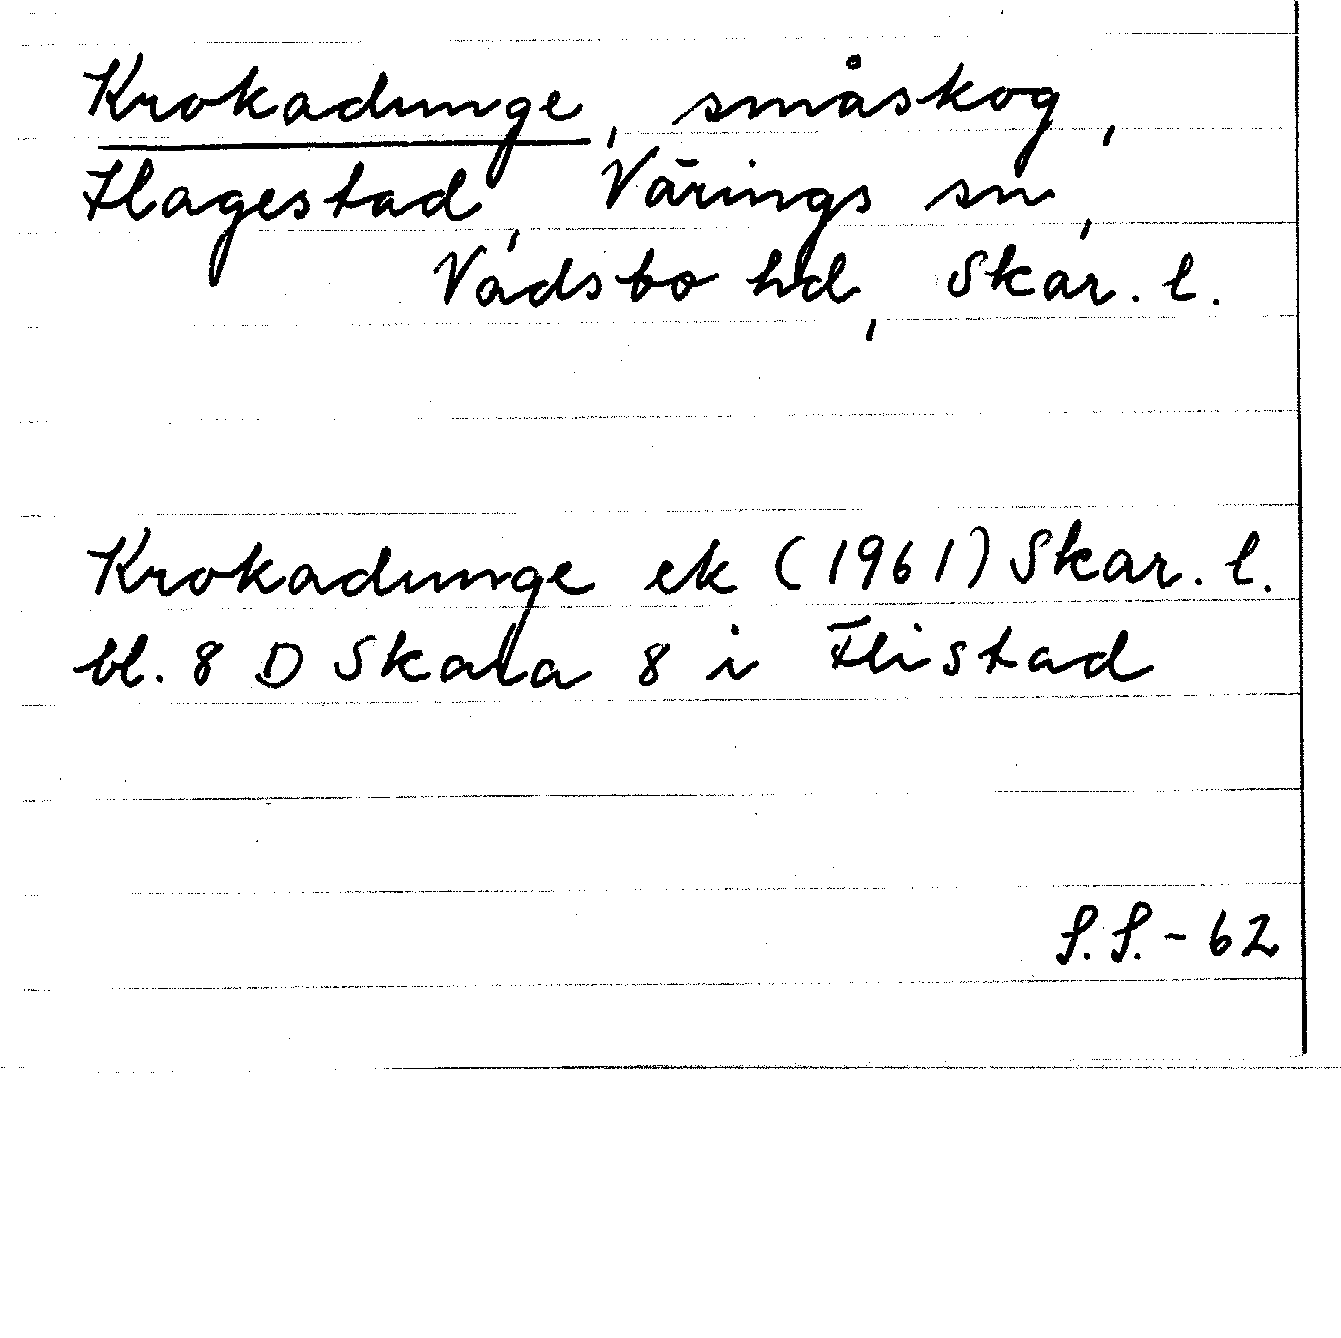 Krokadunge, småskog,
Flagestad, Värings sn,
Vadsbo hd, Skar. l.
Krokadunge ek (1961) Skar. l.
bl. 8 D Skara 8 i Flistad
S.S.-62